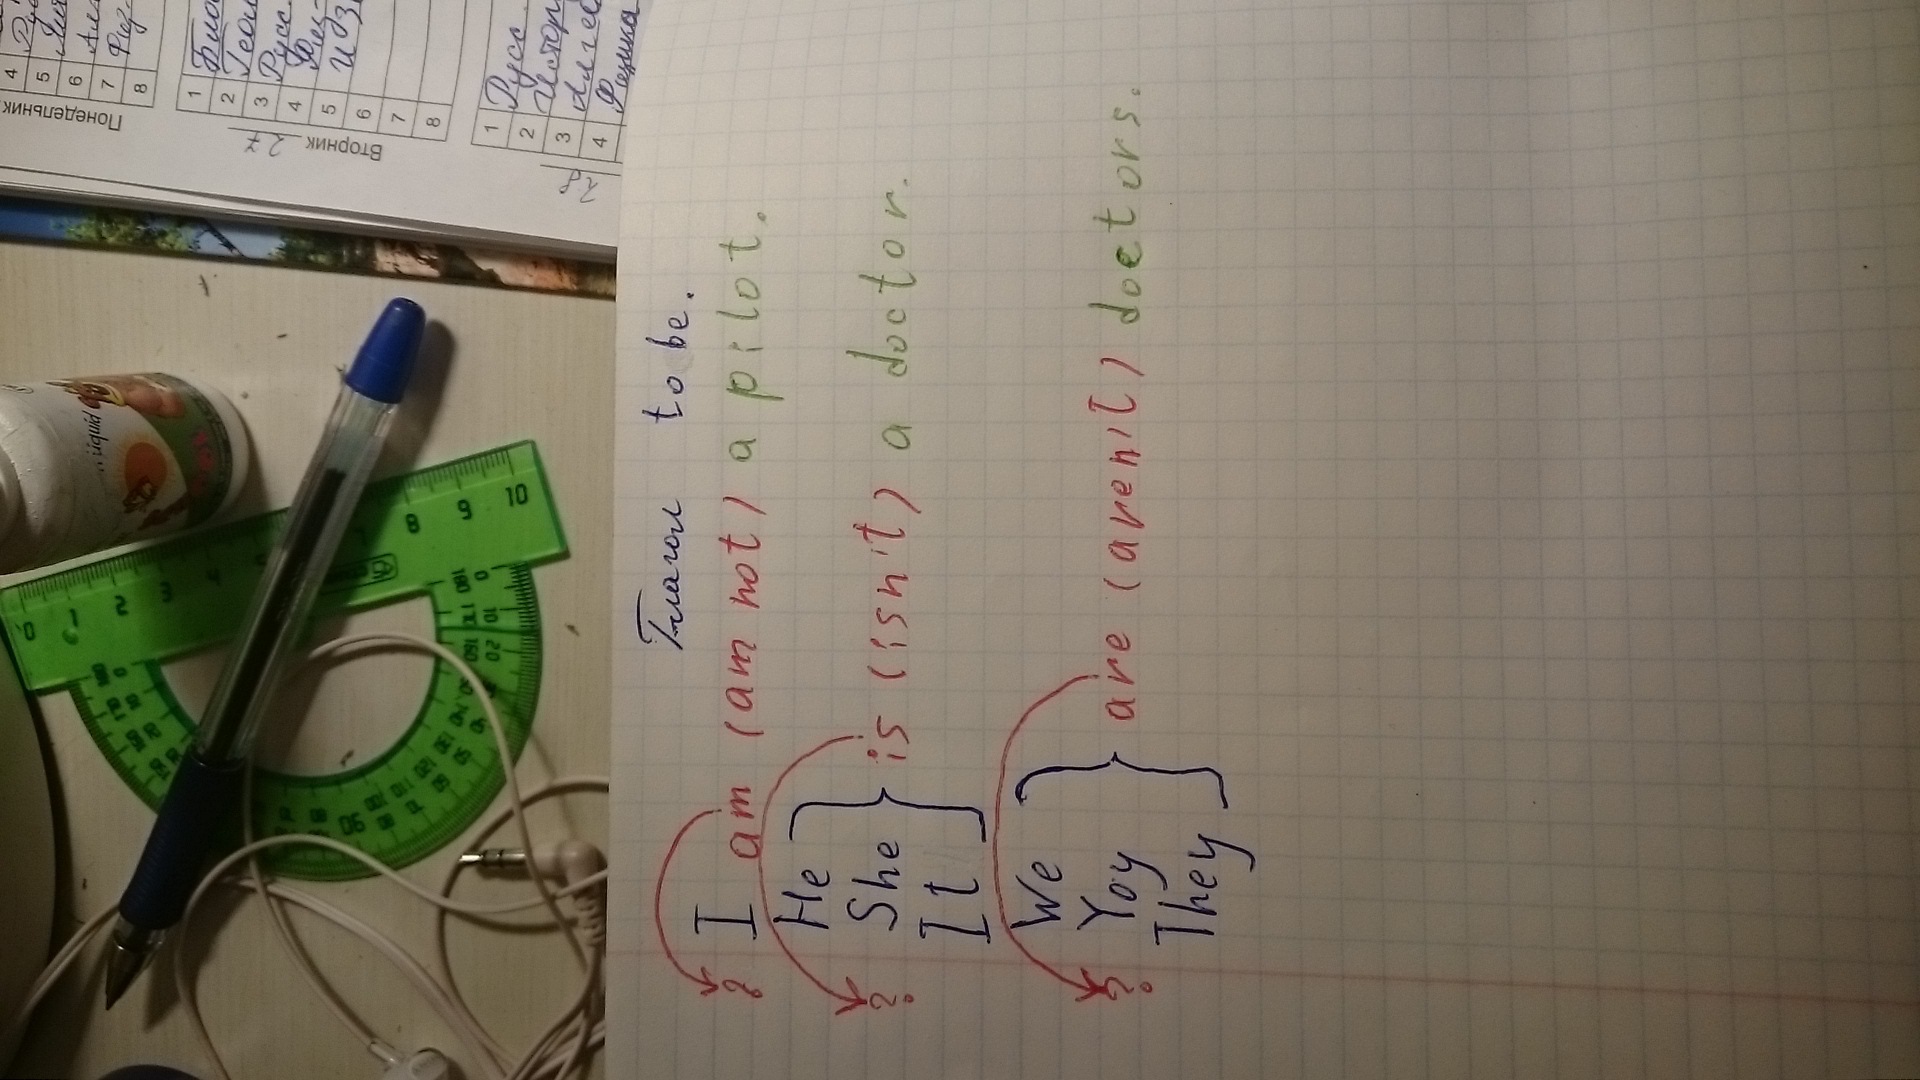 Глагол to be.
I am (am not) a pilot.
?
He
She is (isn't) a doctor.
?
It
We
Yoy are (aren't) doctors.
?
They
Понедельник
4
5
6
7
8
Вторник 27
1
2
3 Русс
4
5 ИЗ
6
7
8
28
1 Русс
2 Истор
3 Алгеб
4 Физика
Liquid
0 1 2 3 4 7 8 9 10